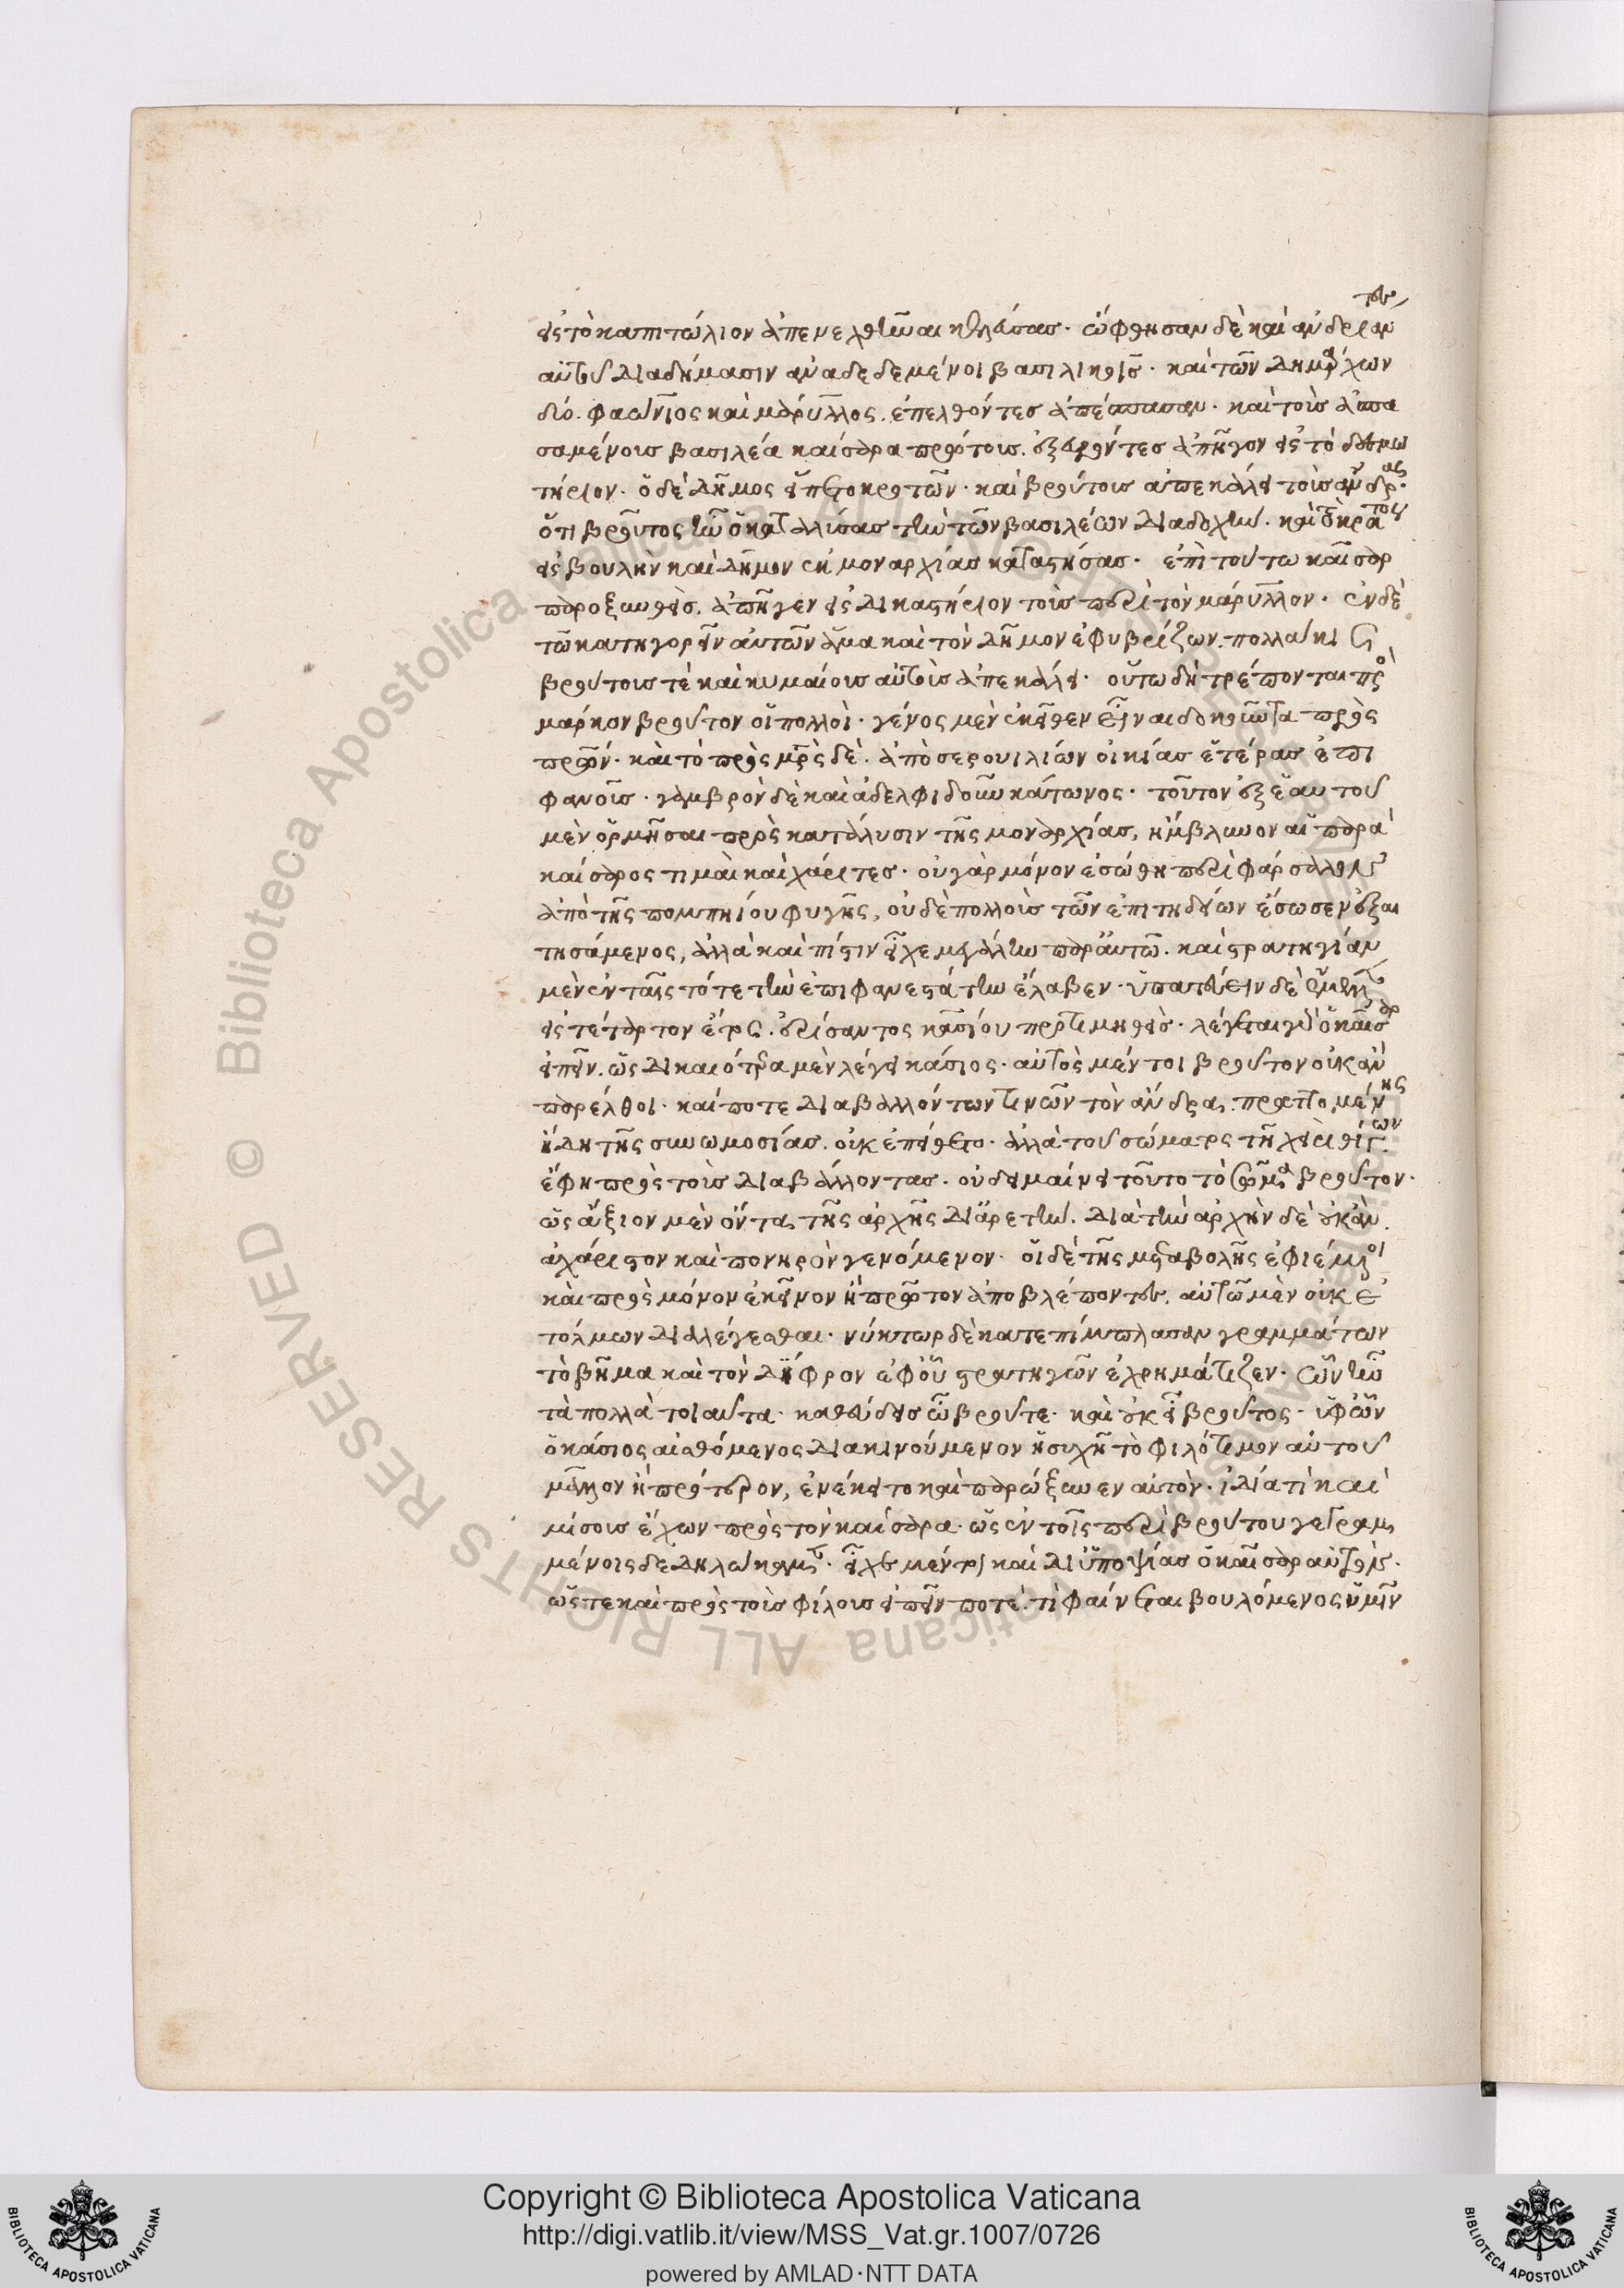 εἰς τὸ καπιτώλιον ἀπενεχθῆναι κελεύσας. ὤφθησαν δὲ καὶ ἀνδριάντες
αὐτοῦ διαδήμασιν ἀναδεδεμένοι βασιλικοῖς. καὶ τῶν δημάρχων
δύο. φλαούϊος καὶ μάρυλλος. ἐπελθόντες ἀπέσπασαν. καὶ τοὺς ἀσπα
σαμένους βασιλέα καίσαρα πρώτους. ἐξευρόντες ἀπῆγον εἰς τὸ δεσμω
τήριον. ὁ δὲ δῆμος εἵπετο κροτῶν. καὶ βρούτους ἀπεκάλει τοὺς ἄνδρας.
ὅτι βροῦτος ἦν ὁ καταλύσας τὴν τῶν βασιλέων διαδοχὴν. καὶ τὸ κράτος
εἰς βουλὴν καὶ δῆμον ἐκ μοναρχίας καταστήσας. ἐπὶ τούτω καῖσαρ
παροξυνθεὶς. ἀπῆγεν εἰς δικαστήριον τοὺς περὶ τὸν μάρυλλον. ἐν δὲ
τῶ κατηγορεῖν αὐτῶν ἅμα καὶ τὸν δῆμον ἐφυβρίζων. πολλάκις
βρούτους τὲ καὶ κυμαίους αὐτοὺς ἀπεκάλει. οὕτω δὴ τρέπονται πρὸς
μάρκον βροῦτον οἱ πολλοὶ. γένος μὲν ἐκεῖθεν εἶναι δοκοῦντα πρὸς
πατέρων. καὶ τὸ πρὸς μητρὸς δὲ. ἀπὸ σερουιλίων οἰκίας ἑτέρας ἐπι
φανοῦς. γαμβρὸν δὲ καὶ ἀδελφιδοῦν κάτωνος. τοῦτον ἐξ ἑαυτοῦ
μὲν ὁρμῆσαι πρὸς κατάλυσιν τῆς μοναρχίας, ἤμβλυνον αἱ παρὰ
καίσαρος τιμαὶ καὶ χάριτες. οὐ γὰρ μόνον ἐσώθη περὶ φάρσαλον
ἀπὸ τῆς πομπηίου φυγῆς, οὐδὲ πολλοὺς τῶν ἐπιτηδείων ἔσωσεν ἐξαι
τησάμενος, ἀλλὰ καὶ πίστιν εἶχε μεγάλην παρ' αὐτῶ. καὶ στρατηγίαν
μὲν ἐν ταῖς τότε τὴν ἐπιφανεστάτην ἔλαβεν. ὑπατεύειν δὲ ἔμελλεν
εἰς τέταρτον ἔτος. ἐρίσαντος κασίου προτιμηθεὶς. λέγεται γὰρ ὁ καῖσαρ
εἰπεῖν. ὡς δικαιότερα μὲν λέγει κάσιος. αὐτὸς μέντοι βροῦτον οὐκ ἂν
παρέλθοι. καί ποτε διαβαλλόντων τινῶν τὸν ἄνδρα, πραττομένης
ἤδη τῆς συνωμοσίας. οὐκ ἐπείθετο. ἀλλὰ τοῦ σώματος τῆ χειρὶ θιγὼν
ἔφη πρὸς τοὺς διαβάλλοντας. οὐδαμαίνει τοῦτο τὸ σῶμα βροῦτον.
ὡς ἄξιον μὲν ὄντα τῆς ἀρχῆς δι' ἀρετὴν. διὰ τὴν ἀρχὴν δὲ οὐκ ἂν
ἀχάριστον καὶ πονηρὸν γενόμενον. οἱ δὲ τῆς μεταβολῆς ἐφιέμενοι
καὶ πρὸς μόνον ἐκεῖνον ἢ πρῶτον ἀποβλέποντες. αὐτῶ μὲν οὐκ ἐ
τόλμων διαλέγεσθαι. νύκτωρ δὲ κατεπίμπλασαν γραμμάτων
τὸ βῆμα καὶ τὸν δίφρον ἐφ' οὗ στρατηγῶν ἐχρημάτιζεν. ὧν ἦν
τὰ πολλὰ τοιαῦτα. καθεύδεις ὦ βροῦτε. καὶ οὐκ εἶ βροῦτος. ὑφ' ὧν
ὁ κάσιος αἰσθόμενος διακινούμενον ἡσυχῆ τὸ φιλότιμον αὐτοῦ
μᾶλλον ἢ πρότερον, ἐνέκειτο καὶ παρώξυνεν αὐτὸν. ἰδία τὶ καὶ
μίσους ἔχων πρὸς τὸν καίσαρα. ὡς ἐν τοῖς περὶ βρούτου γεγραμ
μένοις δεδηλώκαμεν. εἶχε μέντοι καὶ δι' ὑποψίας ὁ καῖσαρ αὐτὸν.
ὥστε καὶ πρὸς τοὺς φίλους εἰπεῖν ποτὲ. τὶ φαίνεται βουλόμενος ὑμῖν
Copyright © Biblioteca Apostolica Vaticana
http://digi.vatlib.it/view/MSS_Vat.gr.1007/0726
powered by AMLAD·NTT DATA
© Biblioteca Apostolica Vaticana ALL RIGHTS RESERVED
BIBLIOTECA APOSTOLICA VATICANA
BIBLIOTECA APOSTOLICA VATICANA